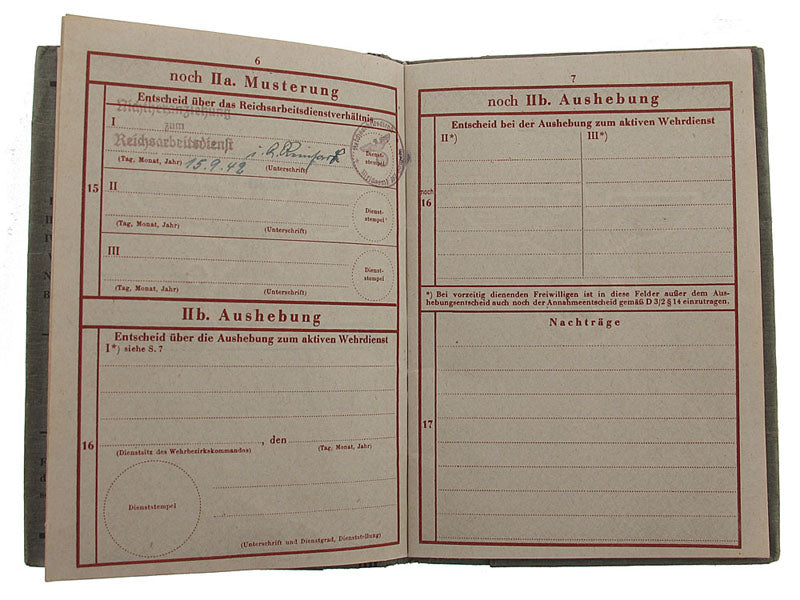 6
noch IIa. Musterung
Entscheid über das Reichsarbeitsdienstverhältnis
I
Nichtheranziehung
zum
Reichsarbeitsdienst
15.9.42
(Tag, Monat, Jahr)
(Unterschrift)
Dienst-
stempel
15
II
(Tag, Monat, Jahr)
(Unterschrift)
Dienst-
stempel
III
(Tag, Monat, Jahr)
(Unterschrift)
Dienst-
stempel
IIb. Aushebung
Entscheid über die Aushebung zum aktiven Wehrdienst
I*) siehe S. 7
16
, den
(Dienstsitz des Wehrbezirkskommandos)
(Tag, Monat, Jahr)
Dienststempel
(Unterschrift und Dienstgrad, Dienststellung)
7
noch IIb. Aushebung
Entscheid bei der Aushebung zum aktiven Wehrdienst
II*)
III*)
noch
16
*) Bei vorzeitig dienenden Freiwilligen ist in diese Felder außer dem Aus-
hebungsentscheid auch noch der Annahmeentscheid gemäß D 3/2 § 14 einzutragen.
Nachträge
17